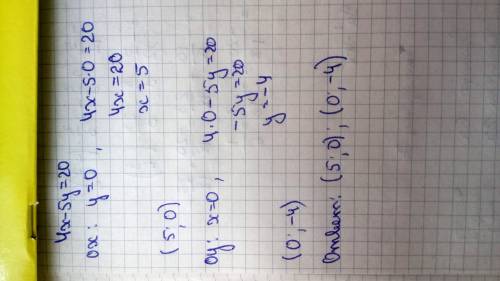 4x-5y=20
ox: y=0, 4x-5·0=20
4x=20
x=5
(5; 0)
oy: x=0, 4·0-5y=20
-5y=20
y=-4
(0; -4)
Ответ: (5; 0); (0; -4)